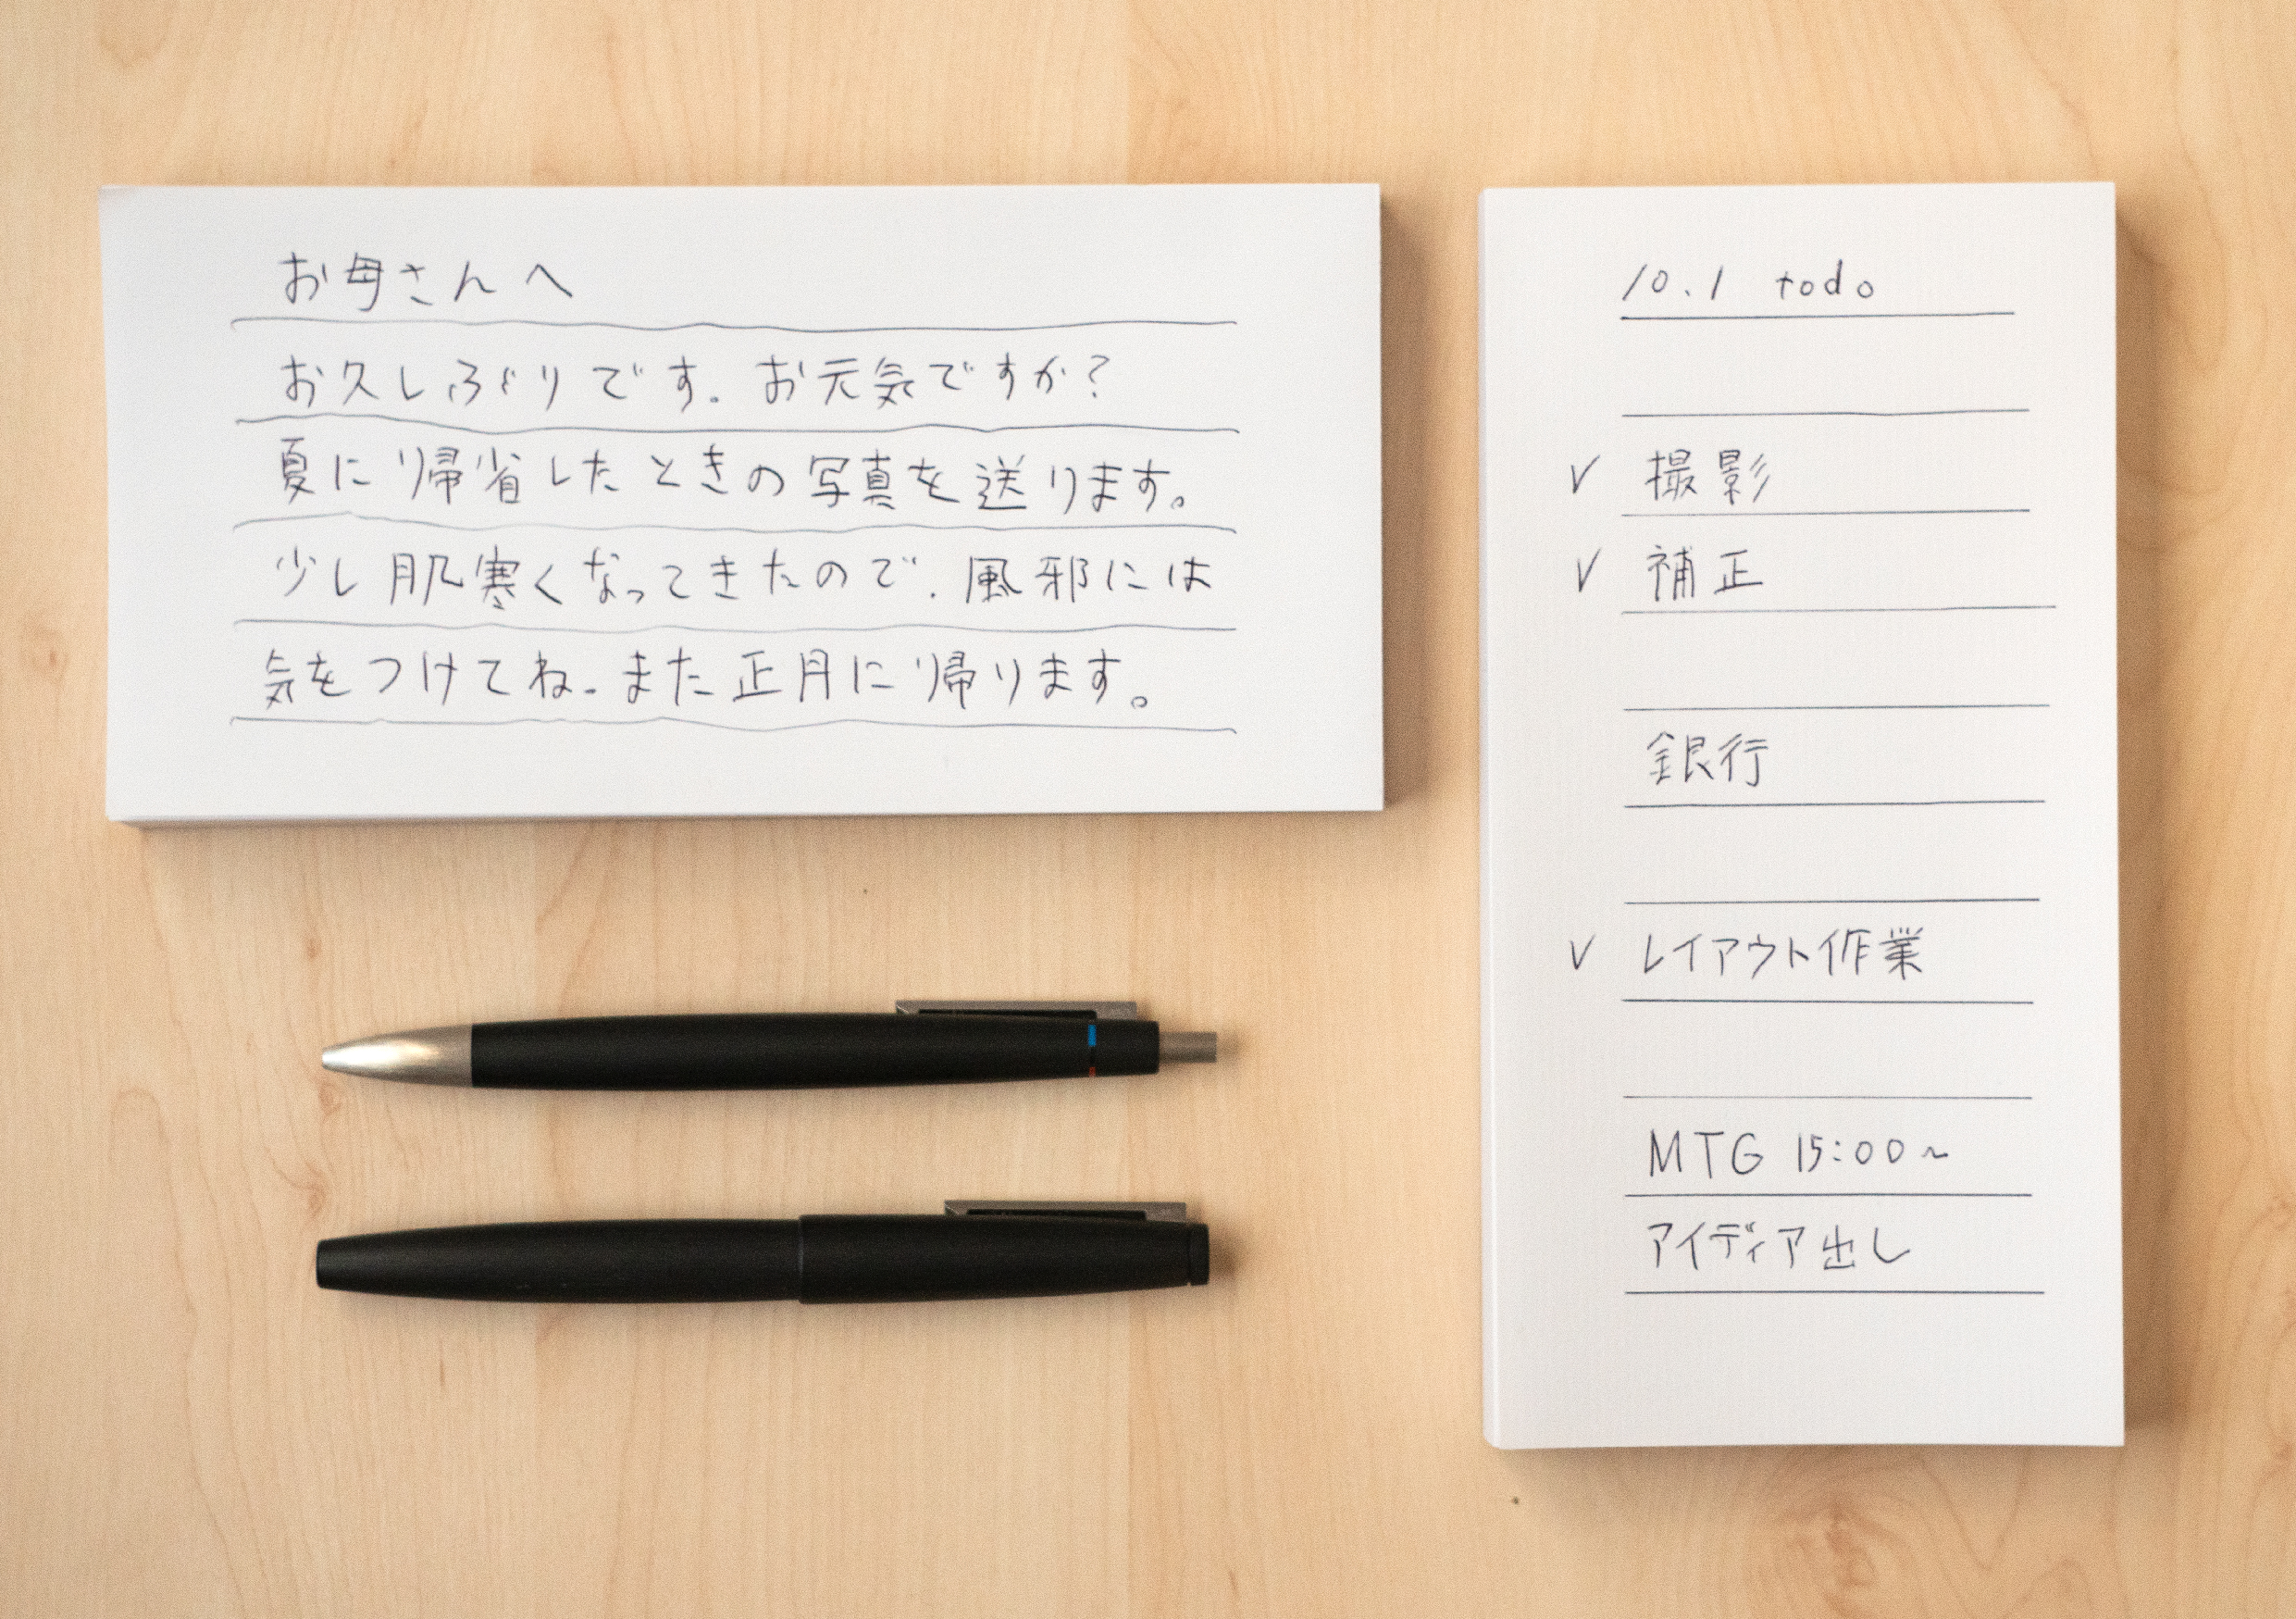 お母さんへ
お久しぶりです。お元気ですか?
夏に帰省したときの写真を送ります。
少し肌寒くなってきたので、風邪には
気をつけてね。また正月に帰ります。
10.1 todo
✓ 撮影
✓ 補正
銀行
✓ レイアウト作業
MTG 15:00~
アイディア出し